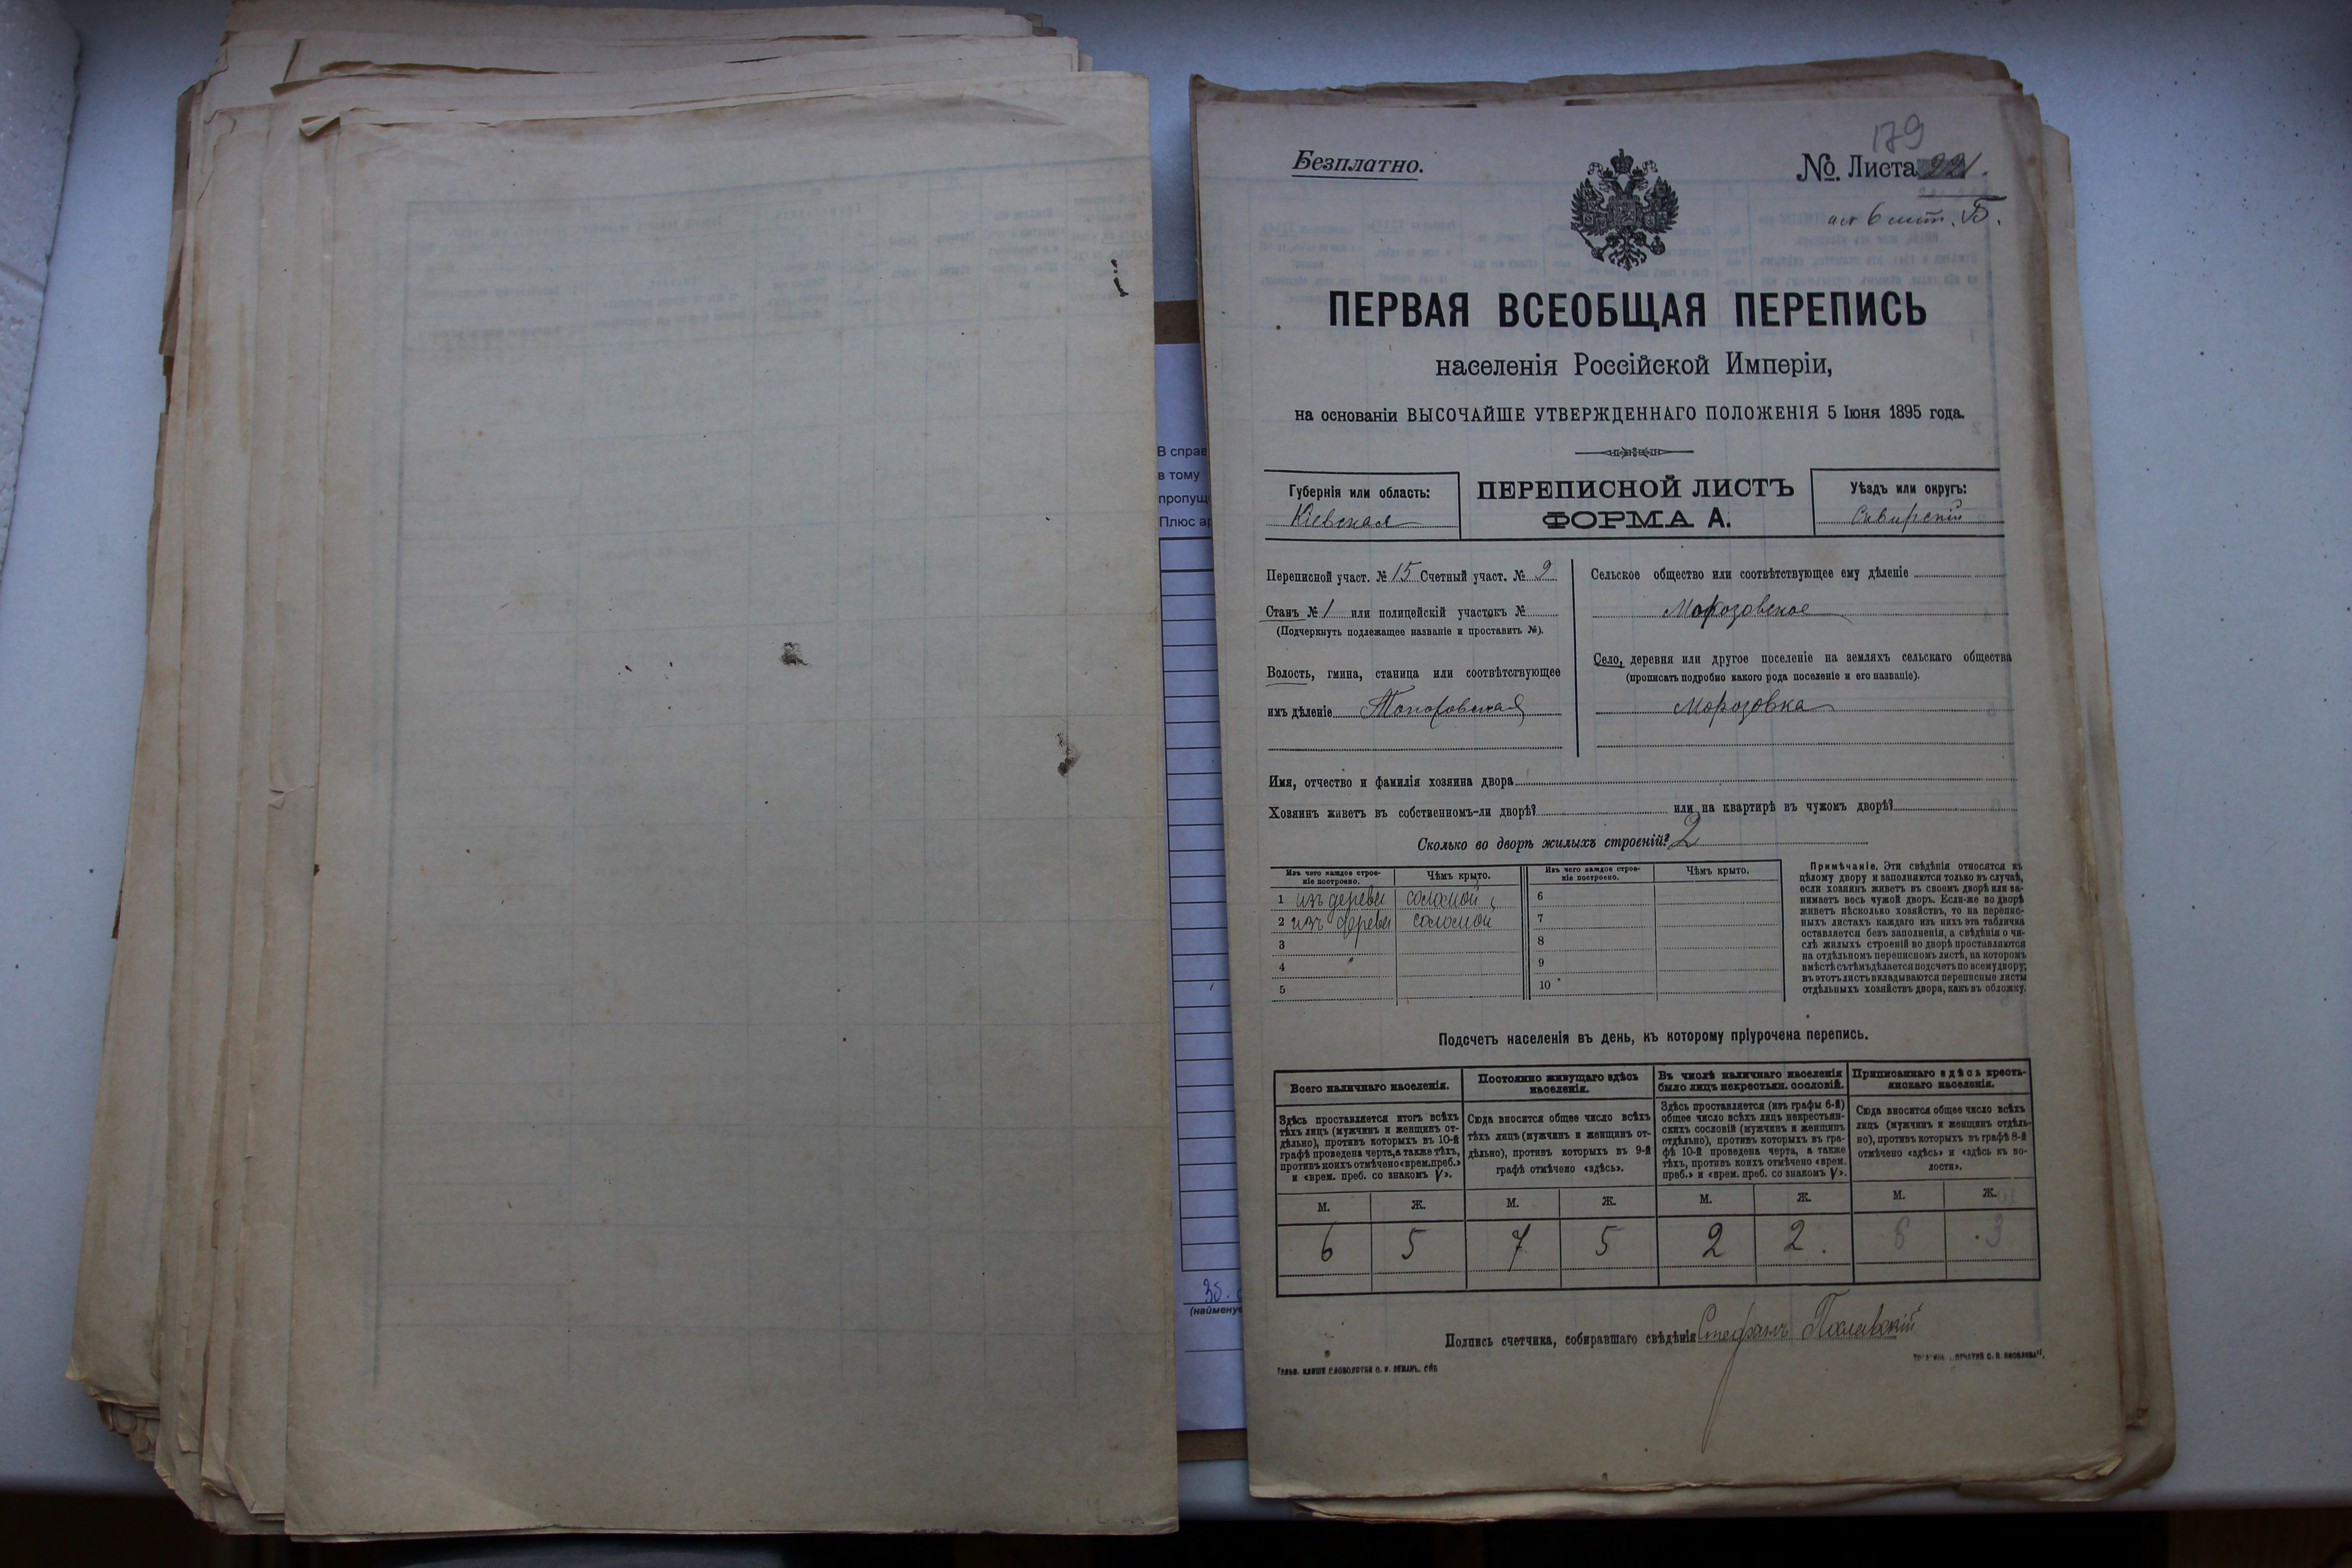 179
Безплатно.
№ Листа 221.
Б.
ПЕРВАЯ ВСЕОБЩАЯ ПЕРЕПИСЬ
населенія Россійской Имперіи,
на основаніи ВЫСОЧАЙШЕ УТВЕРЖДЕННАГО ПОЛОЖЕНІЯ 5 Іюня 1895 года.
Губернія или область:
Кіевская
ПЕРЕПИСНОЙ ЛИСТЪ
ФОРМА А.
Уѣздъ или округъ:
Сквирскій
Переписной участ. № 15 Счетный участ. № 9
Станъ № 1 или полицейскій участокъ №
(Подчеркнуть подлежащее названіе и проставить №).
Волость, гмина, станица или соотвѣтствующее
имъ дѣленіе Топоровская
Сельское общество или соотвѣтствующее ему дѣленіе
Морозовское
Село, деревня или другое поселеніе на земляхъ сельскаго общества
(прописать подробно какого рода поселеніе и его названіе).
Морозовка
Имя, отчество и фамилія хозяина двора
Хозяинъ живетъ въ собственномъ-ли дворѣ? или на квартирѣ въ чужомъ дворѣ?
Сколько во дворѣ жилыхъ строеній? 2
Изъ чего каждое строе-
ніе построено.
Чѣмъ крыто.
Изъ чего каждое строе-
ніе построено.
Чѣмъ крыто.
1 изъ дерева соломой 6
2 изъ дерева соломой 7
3 8
4 9
5 10
Примѣчаніе. Эти свѣдѣнія относятся къ
цѣлому двору и заполняются только въ случаѣ,
если хозяинъ живетъ въ своемъ дворѣ или за-
нимаетъ весь чужой дворъ. Если-же во дворѣ
живетъ нѣсколько хозяйствъ, то на перепис-
ныхъ листахъ каждаго изъ нихъ эта табличка
оставляется безъ заполненія, а свѣдѣнія о чи-
слѣ жилыхъ строеній во дворѣ проставляются
на отдѣльномъ переписномъ листѣ, на которомъ
вмѣстѣ съ тѣмъ дѣлается подсчетъ по всему двору;
въ этотъ листъ вкладываются переписные листы
отдѣльныхъ хозяйствъ двора, какъ въ обложку.
Подсчетъ населенія въ день, къ которому пріурочена перепись.
Всего наличнаго населенія.
Здѣсь проставляется итогъ всѣхъ
тѣхъ лицъ (мужчинъ и женщинъ от-
дѣльно), противъ которыхъ въ 10-й
графѣ проведена черта, а также тѣхъ,
противъ коихъ отмѣчено «врем. преб.»
и «врем. преб. со знакомъ V».
Постоянно живущаго здѣсь
населенія.
Сюда вносится общее число всѣхъ
тѣхъ лицъ (мужчинъ и женщинъ от-
дѣльно), противъ которыхъ въ 9-й
графѣ отмѣчено «здѣсь».
Въ числѣ наличнаго населенія
было лицъ некрестьян. сословій.
Здѣсь проставляется (изъ графы 6-й)
общее число всѣхъ лицъ некрестьян-
скихъ сословій (мужчинъ и женщинъ
отдѣльно), противъ которыхъ въ гра-
фѣ 10-й проведена черта, а также
тѣхъ, противъ коихъ отмѣчено «врем.
преб.» и «врем. преб. со знакомъ V».
Приписаннаго здѣсь кресть-
янскаго населенія.
Сюда вносится общее число всѣхъ
лицъ (мужчинъ и женщинъ отдѣль-
но), противъ которыхъ въ графѣ 8-й
отмѣчено «здѣсь» и «здѣсь къ во-
лости».
М. Ж. М. Ж. М. Ж. М. Ж.
6 5 7 5 2 2. 6 3
Подпись счетчика, собиравшаго свѣдѣнія Стефанъ
В справ
в тому
пропущ
Плюс ар